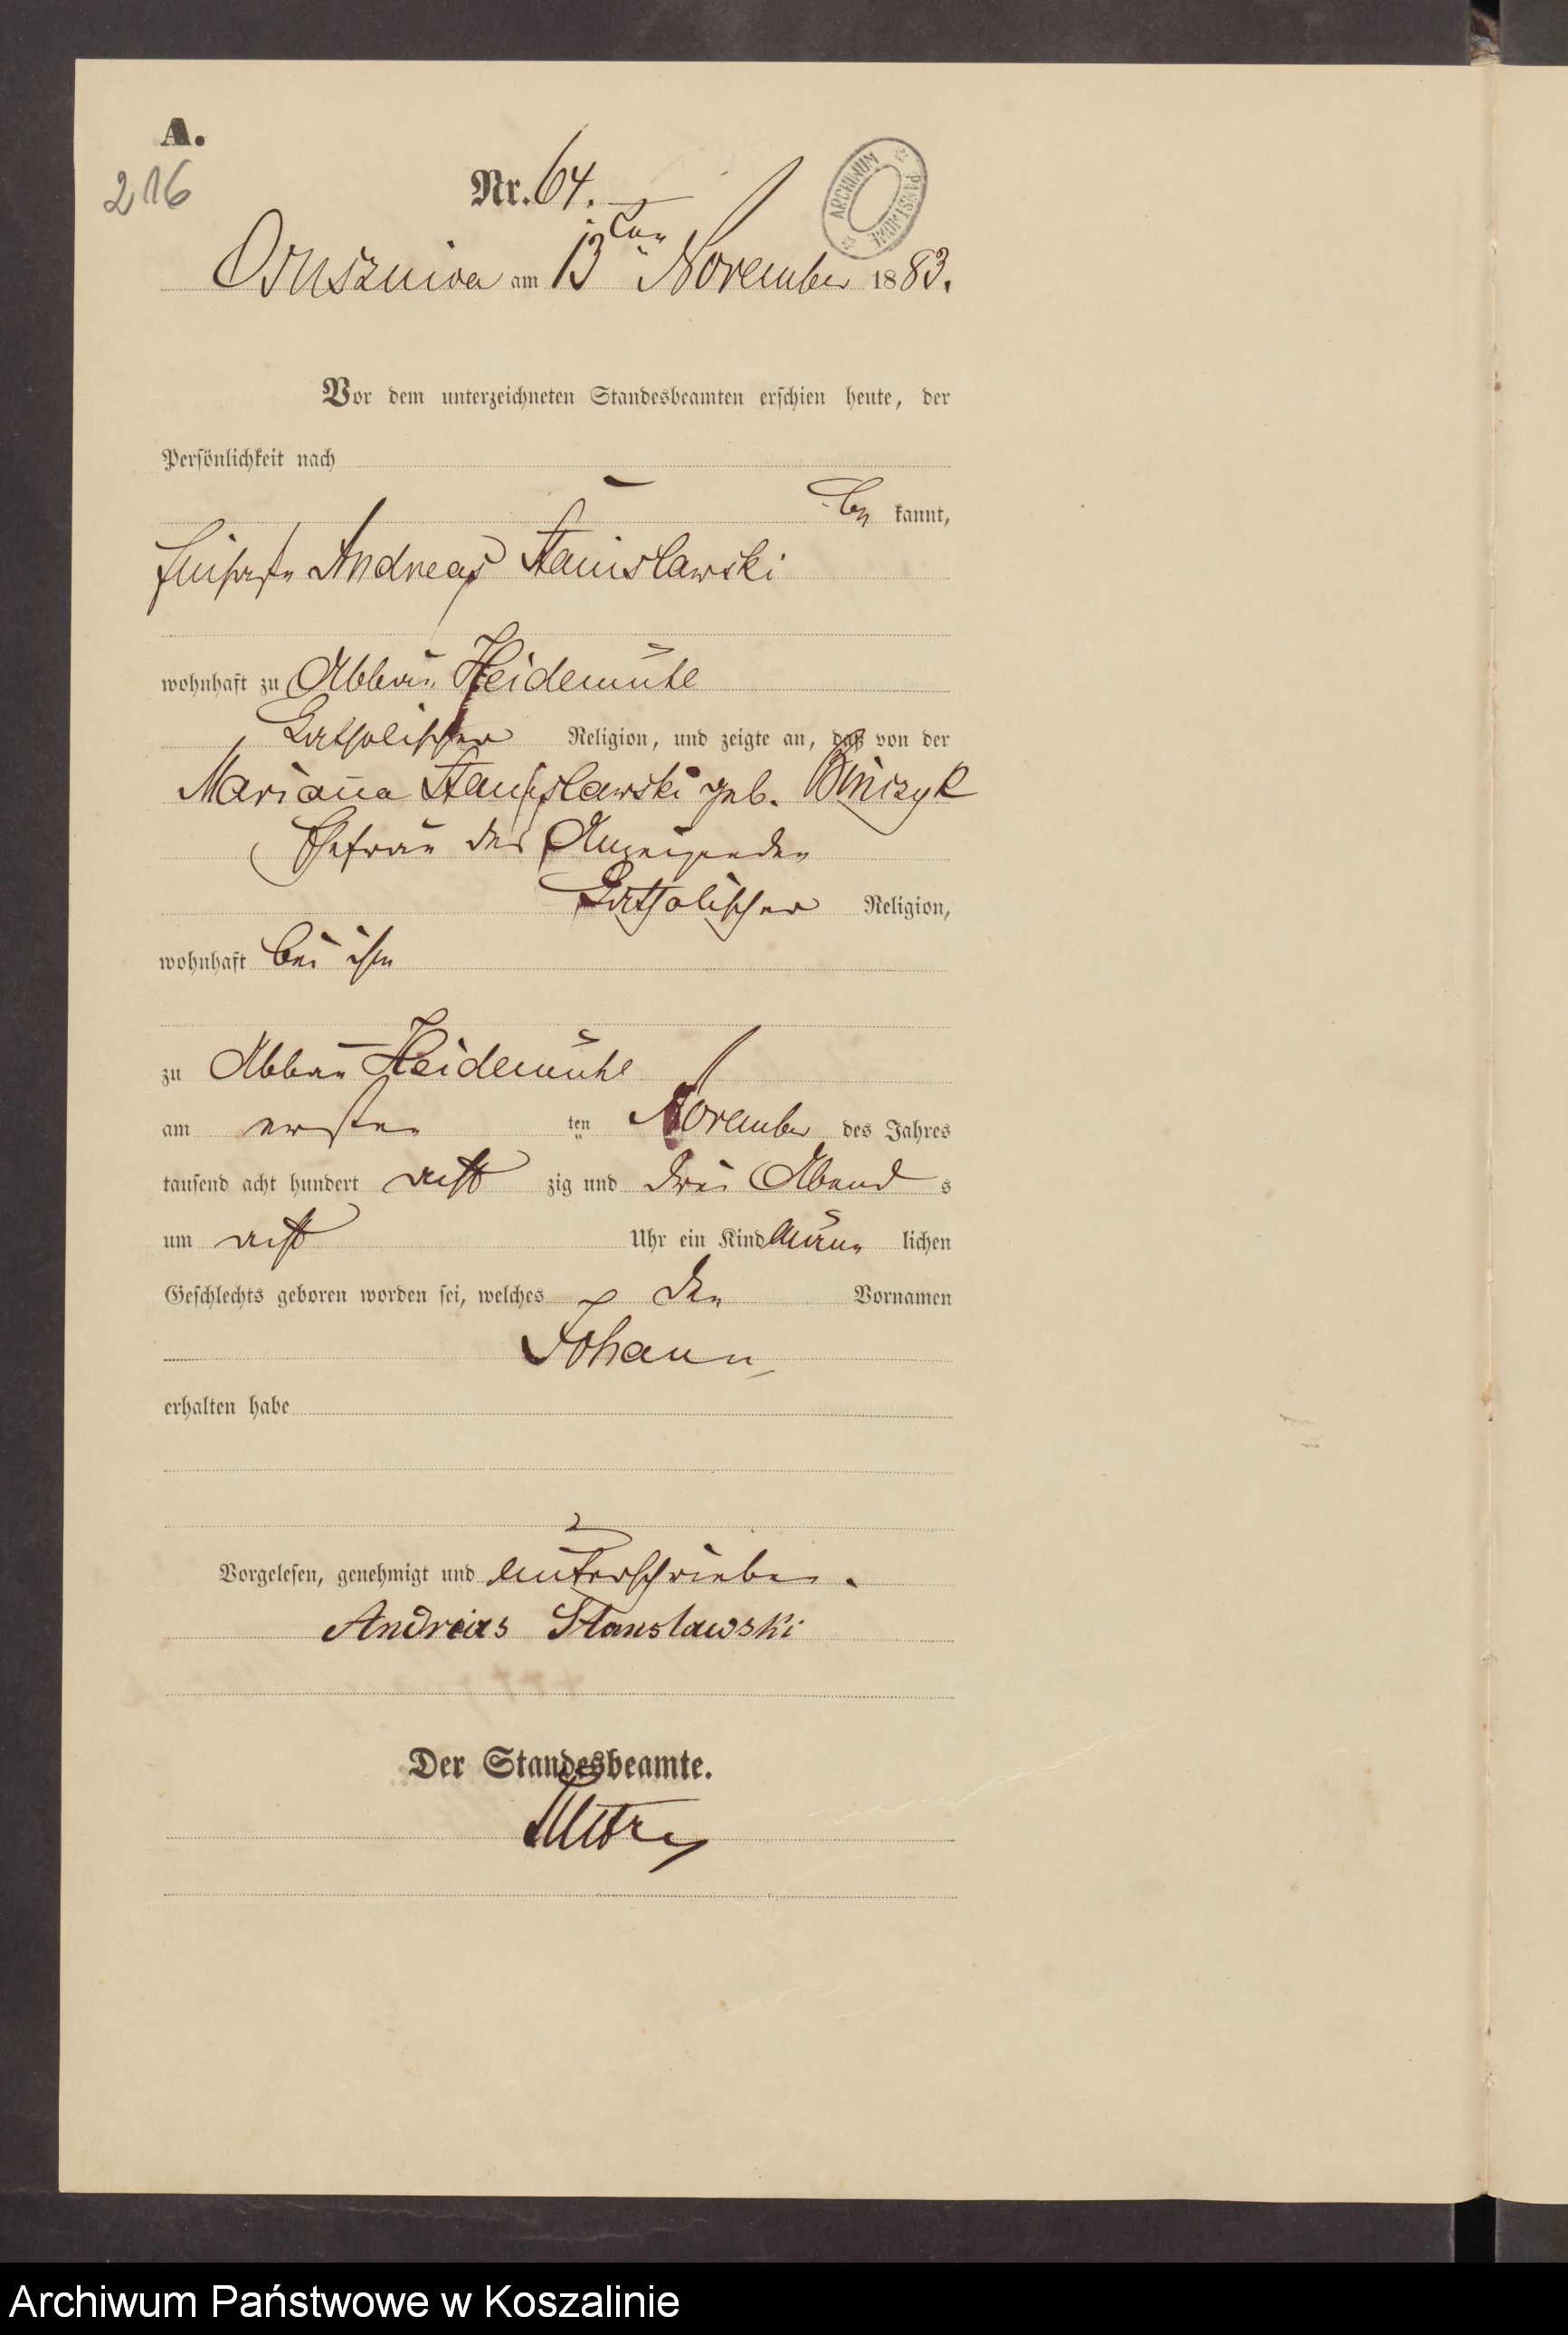 A.
216
Nr. 64.
ARCHIWUM PAŃSTWOWE
Osuszniça am 13ten November 1883.
Vor dem unterzeichneten Standesbeamten erschien heute, der
Persönlichkeit nach
be kannt,
Andreas Stanislawski
wohnhaft zu Abbau Heidemühl
katholischer Religion, und zeigte an, daß von der
Mariana Stanislawski geb. Binczyk
Ehefrau des Anzeigenden
katholischer Religion,
wohnhaft bei ihm
zu Abbau Heidemühl
am ersten ten November des Jahres
tausend acht hundert acht zig und drei Abend s
um acht Uhr ein Kind männ lichen
Geschlechts geboren worden sei, welches den Vornamen
Johann
erhalten habe
Vorgelesen, genehmigt und unterschrieben.
Andreas Stanslawski
Der Standesbeamte.
Archiwum Państwowe w Koszalinie